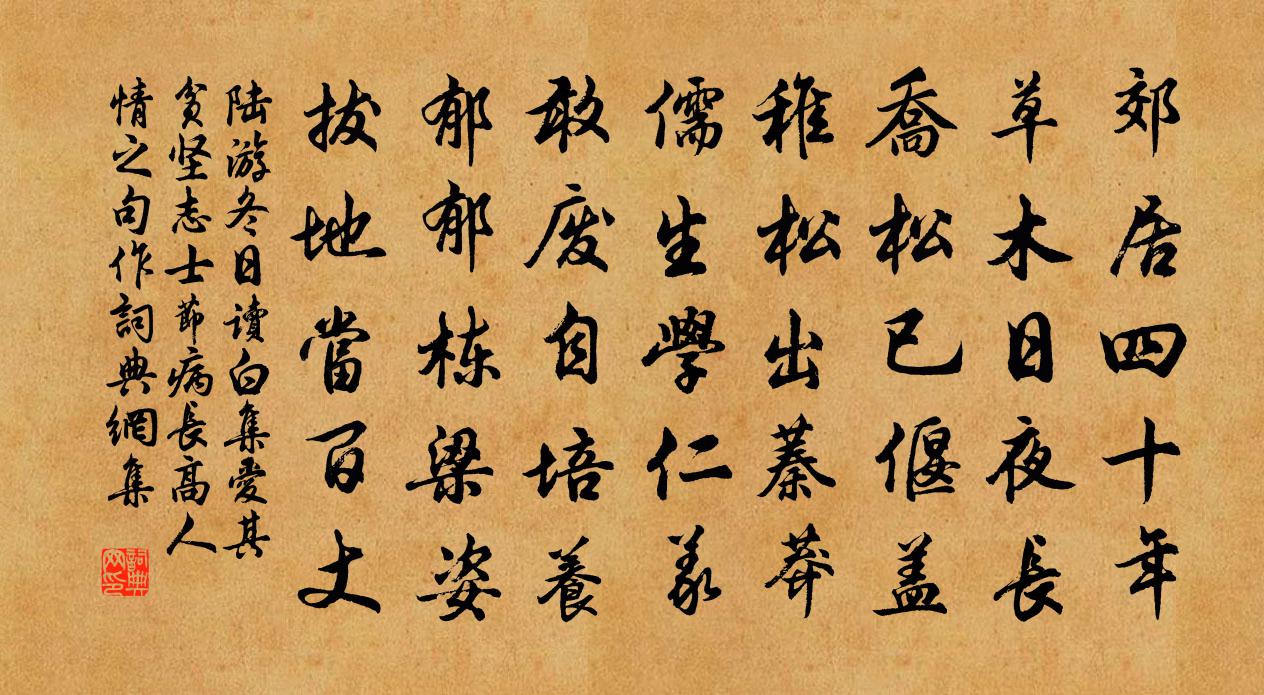 郊居四十年
草木日夜長
喬松已偃蓋
稚松出蓁莽
儒生學仁義
敢废自培養
郁郁栋梁姿
拔地當百丈
陆游冬日讀白集愛其
貧坚志士節病長高人
情之句作詞典網集
詞典网印